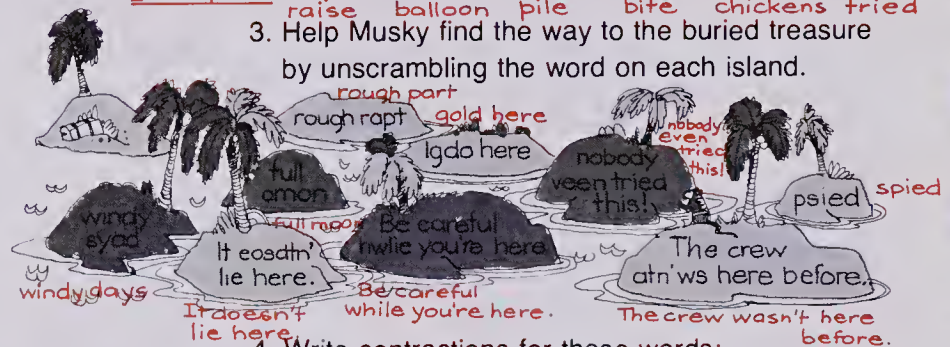 raise balloon pile bite chickens tried
3. Help Musky find the way to the buried treasure
by unscrambling the word on each island.
rough part
rough rapt
gold here
lgdo here
nobody
even
tried
this!
nobody
veen tried
this!
full
omon
full moon
psied
spied
windy
syad
windy days
It eosdtn'
lie here.
It doesn't
lie here.
Be careful
hwlie you're here
Be careful
while you're here.
The crew
atn'ws here before.
The crew wasn't here
before.
4. Write contractions for these words: